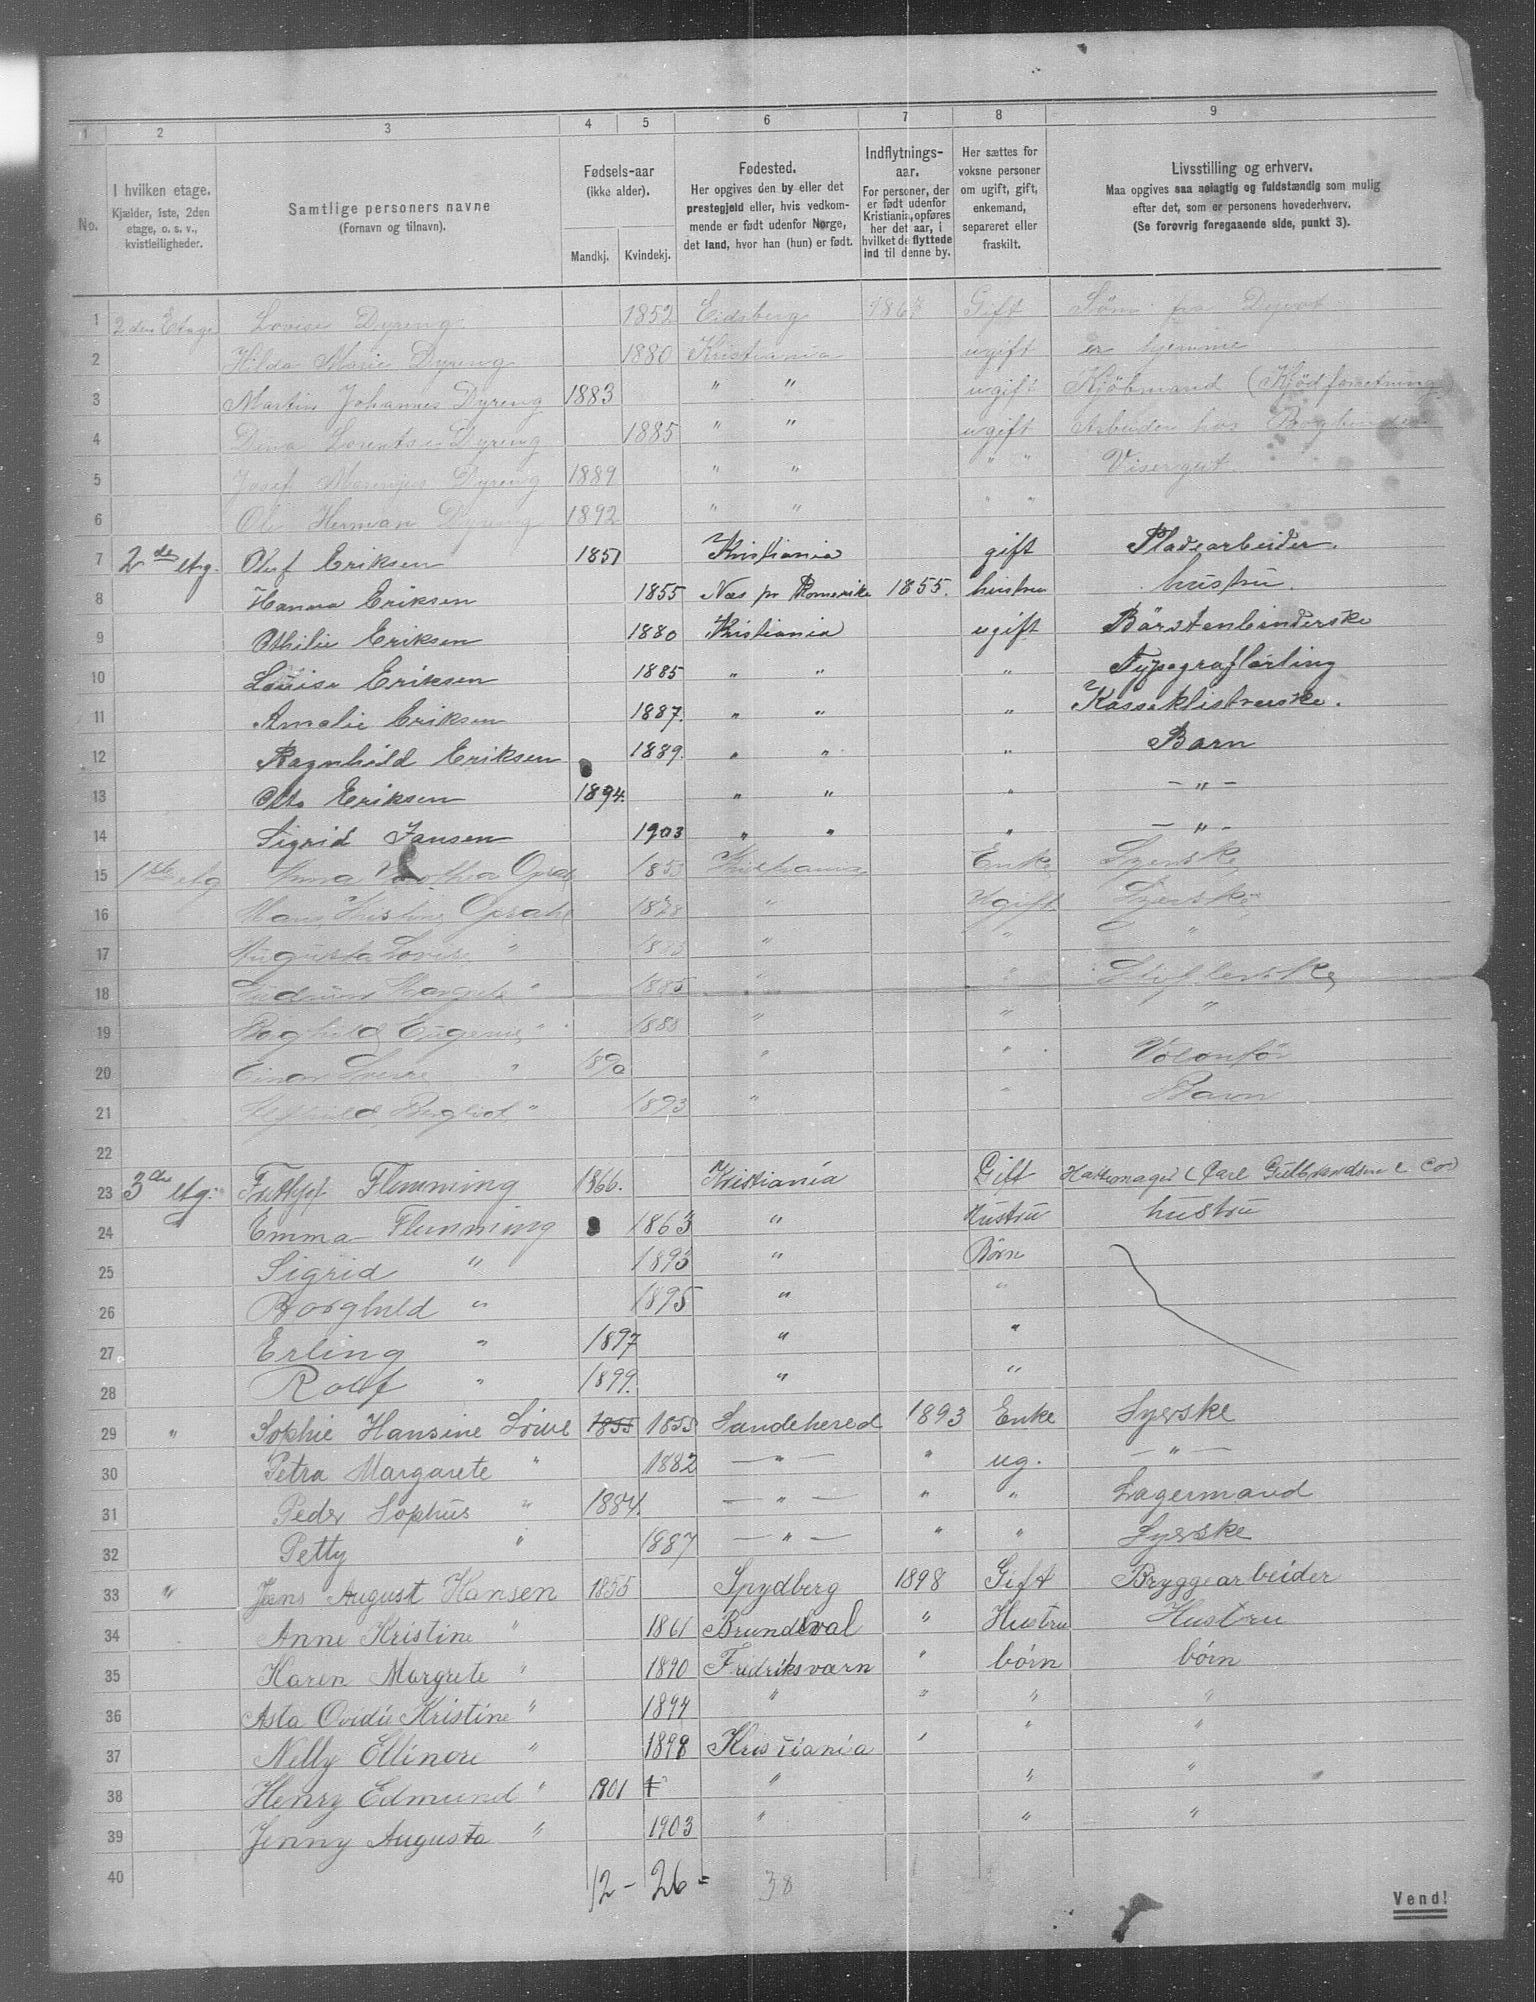 1 2 3 4 5 6 7 8 9
No. | I hvilken etage. Kjælder, 1ste, 2den etage, o. s. v., kvistleiligheder. | Samtlige personers navne (Fornavn og tilnavn). | Fødsels-aar (ikke alder). Mandkj. Kvindekj. | Fødested. Her opgives den by eller det prestegjeld eller, hvis vedkommende er født udenfor Norge, det land, hvor han (hun) er født. | Indflytnings-aar. For personer, der er født udenfor Kristiania, opføres her det aar, i hvilket de flyttede ind til denne by. | Her sættes for voksne personer om ugift, gift, enkemand, separeret eller fraskilt. | Livsstilling og erhverv. Maa opgives saa nøiagtig og fuldstændig som mulig efter det, som er personens hovederhverv. (Se forøvrig foregaaende side, punkt 3).
1 2den Etage Lovise Dyreng 1852 Eidsberg 1867 Gift fra
2 Hilda Marie Dyreng 1880 Kristiania ugift er hjemme
3 Martin Johannes Dyreng 1883 " " ugift Kjøbmand (Kjødforretning)
4 Dina Lorentse Dyreng 1885 " " ugift Arbeider hos Bogbinder
5 Josef Dyreng 1889 " " " " Visergut
6 Ole Herman Dyreng 1892 " " " "
7 2de etg. Oluf Eriksen 1851 Kristiania gift Pladearbeider.
8 Hanna Eriksen 1855 Næs pr Romerike 1855. hustru hustru.
9 Othilie Eriksen 1880 Kristiania ugift Børstenbinderske
10 Louise Eriksen 1885 " " " Typograflærling
11 Amalie Eriksen 1887. " " " Kasseklistrerske.
12 Ragnhild Eriksen 1889. " " " Barn
13 Otto Eriksen 1894. " " " — " —
14 Sigrid Jansen 1903 " " " — " —
15 1ste etg Anna 1853 Kristiania Enke Syerske
16 Kristine 1878 " Ugift Syerske
17 Augusta Lovise " 1883 " " "
18 Gudrun Margrete " 1885 " "
19 Eugenie " 1888 " " "
20 Einar Sverre " 1890 " " Volontør
21 " 1893 " " Barn
22
23 3die etg. Frithjof Flemming 1866. Kristiania Gift Hattemager (Carl Gulbrandsen & Co)
24 Emma Flemming 1863 " Hustru hustru
25 Sigrid " 1893 " Børn
26 Borghild " 1895 " "
27 Erling " 1897 " "
28 Rolf " 1899. " "
29 " Sophie Hansine 1855 1855 Sandehered 1893 Enke Syerske
30 Petra Margarete " 1882 — " — " ug. — " —
31 Peder Sophus " 1884. — " — " " Lagermand
32 Petty " 1887 — " — " " Syerske
33 " Jens August Hansen 1855 Spydberg 1898 Gift Bryggearbeider
34 Anne Kristine " 1861 " Hustru Hustru
35 Karen Margrete " 1890 Fredriksværn " børn børn
36 Asta Kristine " 1894 " " " "
37 Nelly Ellinore " 1898 Kristiania " " "
38 Henry Edmund " 1901 " " "
39 Jenny Augusta " 1903 " " "
40 12 - 26 = 38
Vend!